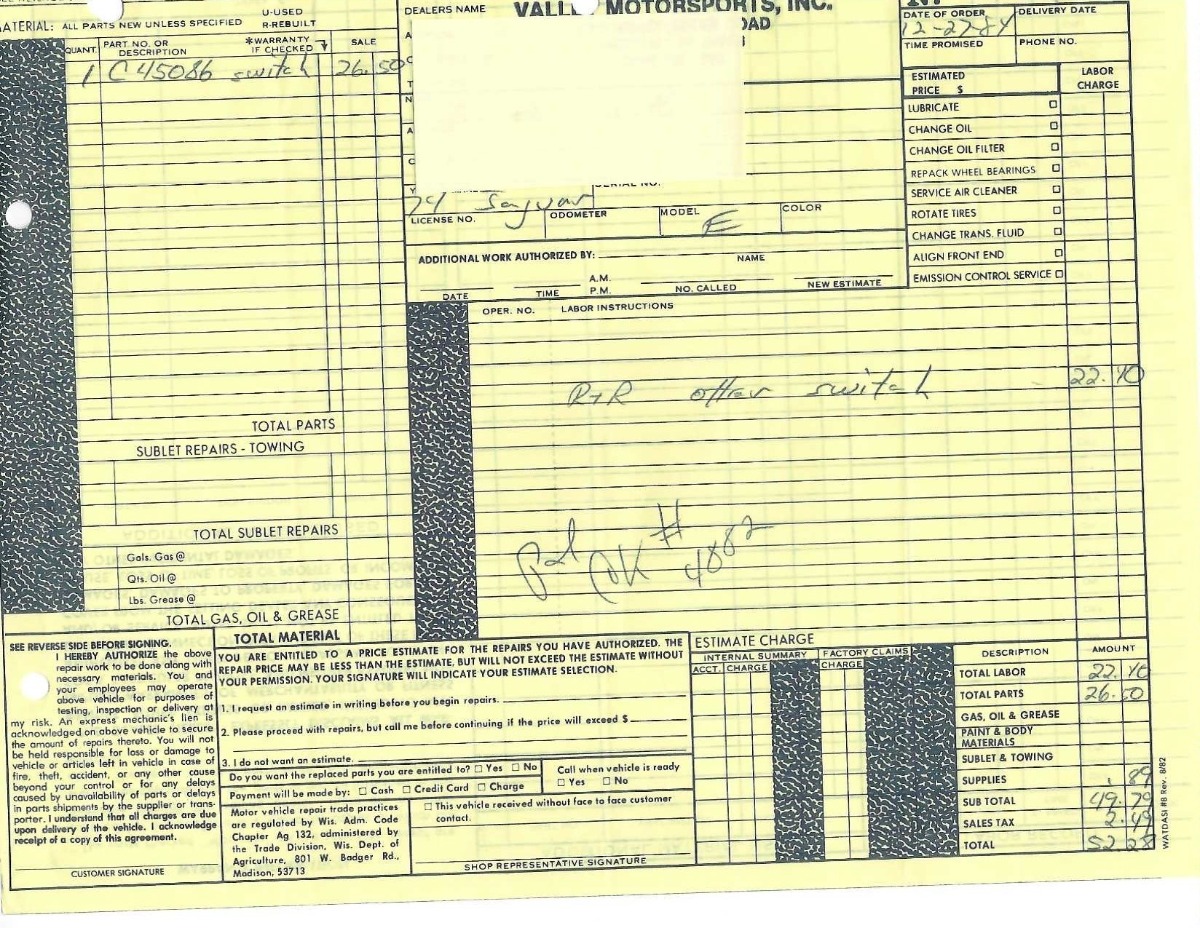 MATERIAL: ALL PARTS NEW UNLESS SPECIFIED
U-USED
R-REBUILT
QUANT.
PART NO. OR DESCRIPTION
*WARRANTY IF CHECKED
SALE
1 C45086 switch 26.50
TOTAL PARTS
SUBLET REPAIRS - TOWING
TOTAL SUBLET REPAIRS
Gals. Gas @
Qts. Oil @
Lbs. Grease @
TOTAL GAS, OIL & GREASE
TOTAL MATERIAL
DEALERS NAME
MOTORSPORTS, INC.
DATE OF ORDER
12-27-84
DELIVERY DATE
TIME PROMISED
PHONE NO.
ESTIMATED PRICE $
LABOR CHARGE
LUBRICATE
CHANGE OIL
CHANGE OIL FILTER
REPACK WHEEL BEARINGS
SERVICE AIR CLEANER
ROTATE TIRES
CHANGE TRANS. FLUID
ALIGN FRONT END
EMISSION CONTROL SERVICE
SERIAL NO.
74 Jaguar
LICENSE NO.
ODOMETER
MODEL
E
COLOR
ADDITIONAL WORK AUTHORIZED BY:
NAME
DATE
TIME
A.M.
P.M.
NO. CALLED
NEW ESTIMATE
OPER. NO.
LABOR INSTRUCTIONS
R+R otter switch 22.40
Pd CK # 4882
SEE REVERSE SIDE BEFORE SIGNING.
I HEREBY AUTHORIZE the above
repair work to be done along with
necessary materials. You and
your employees may operate
above vehicle for purposes of
testing, inspection or delivery at
my risk. An express mechanic's lien is
acknowledged on above vehicle to secure
the amount of repairs thereto. You will not
be held responsible for loss or damage to
vehicle or articles left in vehicle in case of
fire, theft, accident, or any other cause
beyond your control or for any delays
caused by unavailability of parts or delays
in parts shipments by the supplier or trans-
porter. I understand that all charges are due
upon delivery of the vehicle. I acknowledge
receipt of a copy of this agreement.
CUSTOMER SIGNATURE
YOU ARE ENTITLED TO A PRICE ESTIMATE FOR THE REPAIRS YOU HAVE AUTHORIZED. THE
REPAIR PRICE MAY BE LESS THAN THE ESTIMATE, BUT WILL NOT EXCEED THE ESTIMATE WITHOUT
YOUR PERMISSION. YOUR SIGNATURE WILL INDICATE YOUR ESTIMATE SELECTION.
1. I request an estimate in writing before you begin repairs.
2. Please proceed with repairs, but call me before continuing if the price will exceed $
3. I do not want an estimate.
Do you want the replaced parts you are entitled to? Yes No
Payment will be made by: Cash Credit Card Charge
Call when vehicle is ready
Yes No
Motor vehicle repair trade practices
are regulated by Wis. Adm. Code
Chapter Ag 132, administered by
the Trade Division, Wis. Dept. of
Agriculture, 801 W. Badger Rd.,
Madison, 53713
This vehicle received without face to face customer
contact.
SHOP REPRESENTATIVE SIGNATURE
ESTIMATE CHARGE
INTERNAL SUMMARY
FACTORY CLAIMS
ACCT.
CHARGE
CHARGE
DESCRIPTION AMOUNT
TOTAL LABOR 22.40
TOTAL PARTS 26.50
GAS, OIL & GREASE
PAINT & BODY MATERIALS
SUBLET & TOWING
SUPPLIES .89
SUB TOTAL 49.79
SALES TAX 2.49
TOTAL 52.28
WATDASI #8 Rev. 8/82